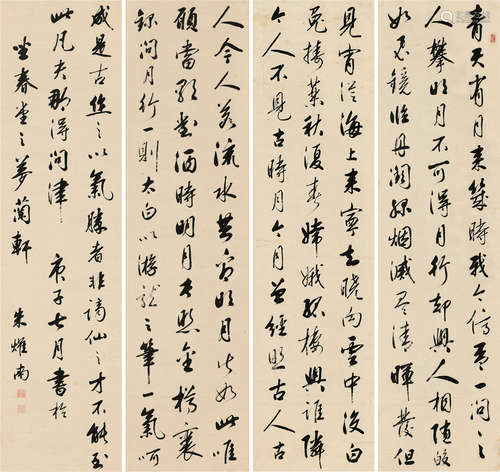 青天有月来幾時我今停盃一問之
人攀明月不可得月行却與人相随皎
如飛鏡臨丹闕緑烟滅盡清暉發但
見宵從海上来寧知曉向雲中没白
兔擣藥秋復春嫦娥孤棲與誰隣
今人不見古時月今月曾經照古人古
人今人若流水共看明月皆如此唯
願當歌對酒時明月長照金樽裏
録問月行一則太白以游龍之筆一氣呵
成是古絶之以氣勝者非謫仙之才不能到
此凡夫那得問津 庚子七月書於
坐春堂之夢蘭軒
朱燿南